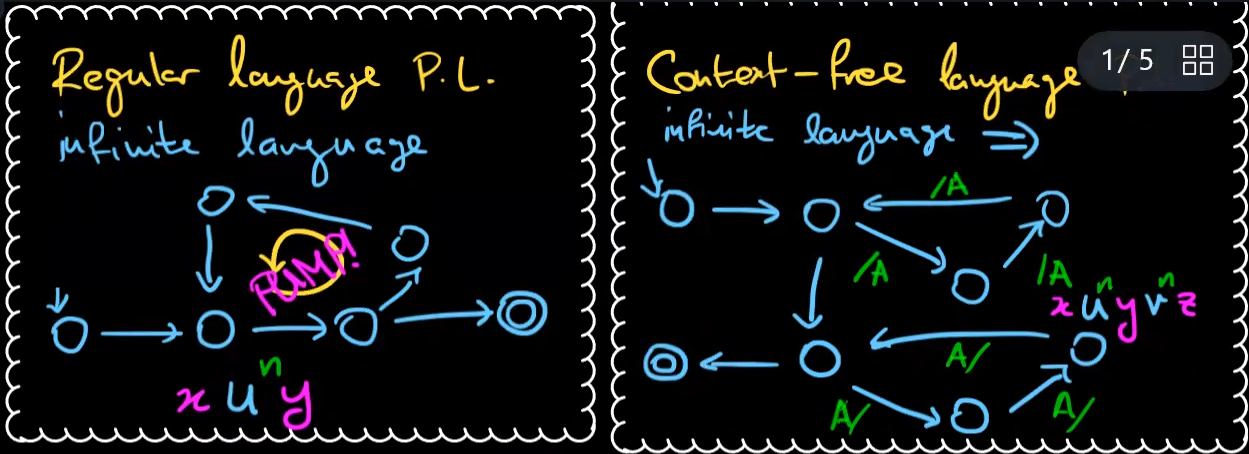 Regular language P.L.
infinite language
PUMP!
x uⁿ y
Context-free language
1/5
infinite language ⇒
/A
/A
/A
x uⁿ y vⁿ z
A/
A/
A/